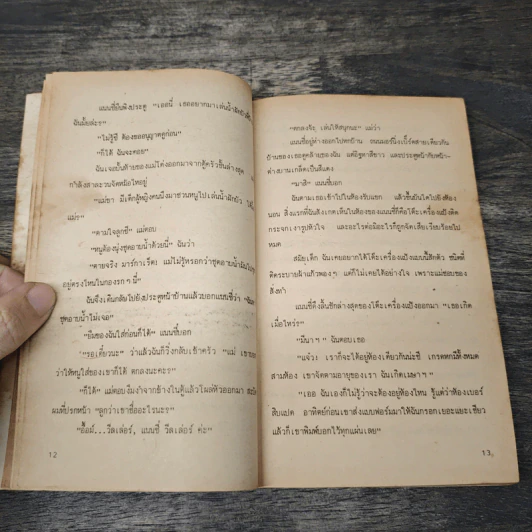 แนนซี่ยืนพิงประตู "เธอนี่ เธออยากมาเล่นน้ำ
ฉันมั้ยล่ะ?"
"ไม่รู้ซี ต้องขออนุญาตดูก่อน"
"ก็ได้ ฉันจะคอย"
ฉันเจอบั้นท้ายของแม่โด่งออกมาจากตู้ครัวชั้นล่างสุด
กำลังสาละวนจัดหม้อไหอยู่
"แม่ขา มีเด็กผู้หญิงคนนึงมาชวนหนูไปเล่นน้ำฝักบัว
แม่?"
"ตามใจลูกซี" แม่ตอบ
"หนูต้องนุ่งชุดอาบน้ำด้วยนี่" ฉันว่า
"ตายจริง มาร์กาเร็ต! แม่ไม่รู้หรอกว่าชุดอาบน้ำมัน
อยู่ตรงไหนในกองรกๆ นี่"
ฉันจึงเดินกลับไปยังประตูหน้าบ้านแล้วบอกแนนซี่ว่า
ชุดอาบน้ำไม่เจอ"
"ยืมของฉันใส่ก่อนก็ได้" แนนซี่บอก
"รอเดี๋ยวนะ" ว่าแล้วฉันก็วิ่งกลับเข้าครัว "แม่
ว่าให้หนูใส่ของเขาก็ได้ ตกลงนะคะ?"
"ก็ได้" แม่ตอบงึมงำจากข้างในตู้แล้วโผล่หัวออกมา
ผมที่ปรกหน้า "ลูกว่าเขาชื่ออะไรนะ?"
"อื้อม์...วีลเล่อร์, แนนซี่ วีลเล่อร์ ค่ะ"
12
"ตกลงจ้ะ, เล่นให้สนุกนะ" แม่ว่า
แนนซี่อยู่ห่างออกไปหกบ้าน ถนนมอร์นิ่งเบิ้ร์ดสายเดียวกัน
บ้านของเธอดูคล้ายของฉัน แต่อิฐทาสีขาว และประตูหน้ากับหน้า-
ต่างบานเกล็ดเป็นสีแดง
"มาสิ" แนนซี่บอก
ฉันตามเธอเข้าไปในห้องรับแขก แล้วขึ้นบันไดไปยังห้อง
นอน สิ่งแรกที่ฉันสังเกตเห็นในห้องของแนนซี่ก็คือโต๊ะเครื่องแป้งติด
กระจกเงารูปหัวใจ และอะไรต่อมิอะไรก็ถูกจัดเสียเรียบร้อยไป
หมด
สมัยเด็ก ฉันเคยอยากได้โต๊ะเครื่องแป้งแบบนี้สักตัว ชนิดที่
ติดระบายผ้าแก้วพองๆ แต่ก็ไม่เคยได้อย่างใจ เพราะแม่ชอบของ
สั่งทำ
แนนซี่ดึงลิ้นชักล่างสุดของโต๊ะเครื่องแป้งออกมา "เธอเกิด
เมื่อไหร่?"
"มีนาฯ" ฉันตอบเธอ
"แจ๋ว! เราก็จะได้อยู่ห้องเดียวกันน่ะซี เกรดหกมีทั้งหมด
สามห้อง เขาจัดตามอายุของเรา ฉันเกิดเมษาฯ"
"เออ ฉันเองก็ไม่รู้ว่าจะต้องอยู่ห้องไหน รู้แต่ว่าห้องเบอร์
สิบแปด อาทิตย์ก่อนเขาส่งแบบฟอร์มมาให้ฉันกรอกเยอะแยะเชียว
แล้วก็เขาพิมพ์บอกไว้ทุกแผ่นเลย"
13